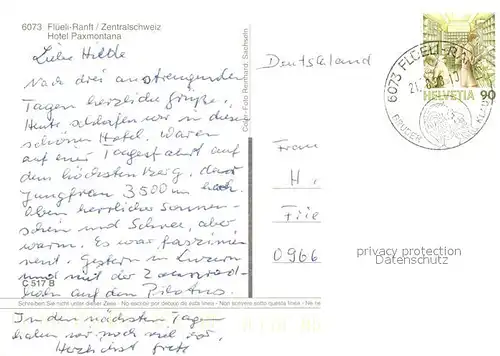 6073 Flüeli-Ranft / Zentralschweiz
Hotel Paxmontana
Liebe Hilde
Nach drei anstrengenden
Tagen herzliche Grüße,
Heute schlafen wir in diesem
schönen Hotel. Waren
auf einer Tagesfahrt auf
dem höchsten Berg, der
Jungfrau 3500 m hoch.
Oben herrlicher Sonnen-
schein und Schnee, aber
warm. Es war faszinie-
rend. Gestern in Luzern
und mit der Zahnrad-
bahn auf den Pilatus.
C 517 B
Schreiben Sie nicht unter dieser Zeile - No escribir por debajo de esta línea - Non scrivere sotto questa linea - Ne
In den nächsten Tagen
haben wir noch viel vor.
Herzlichst
Color-Foto Reinhard, Sachseln
Deutschland
HELVETIA 90
6073 FLÜELI-RANFT
BRUDER KLAUS
Frau
H.
Frie
0966
privacy protection
Datenschutz